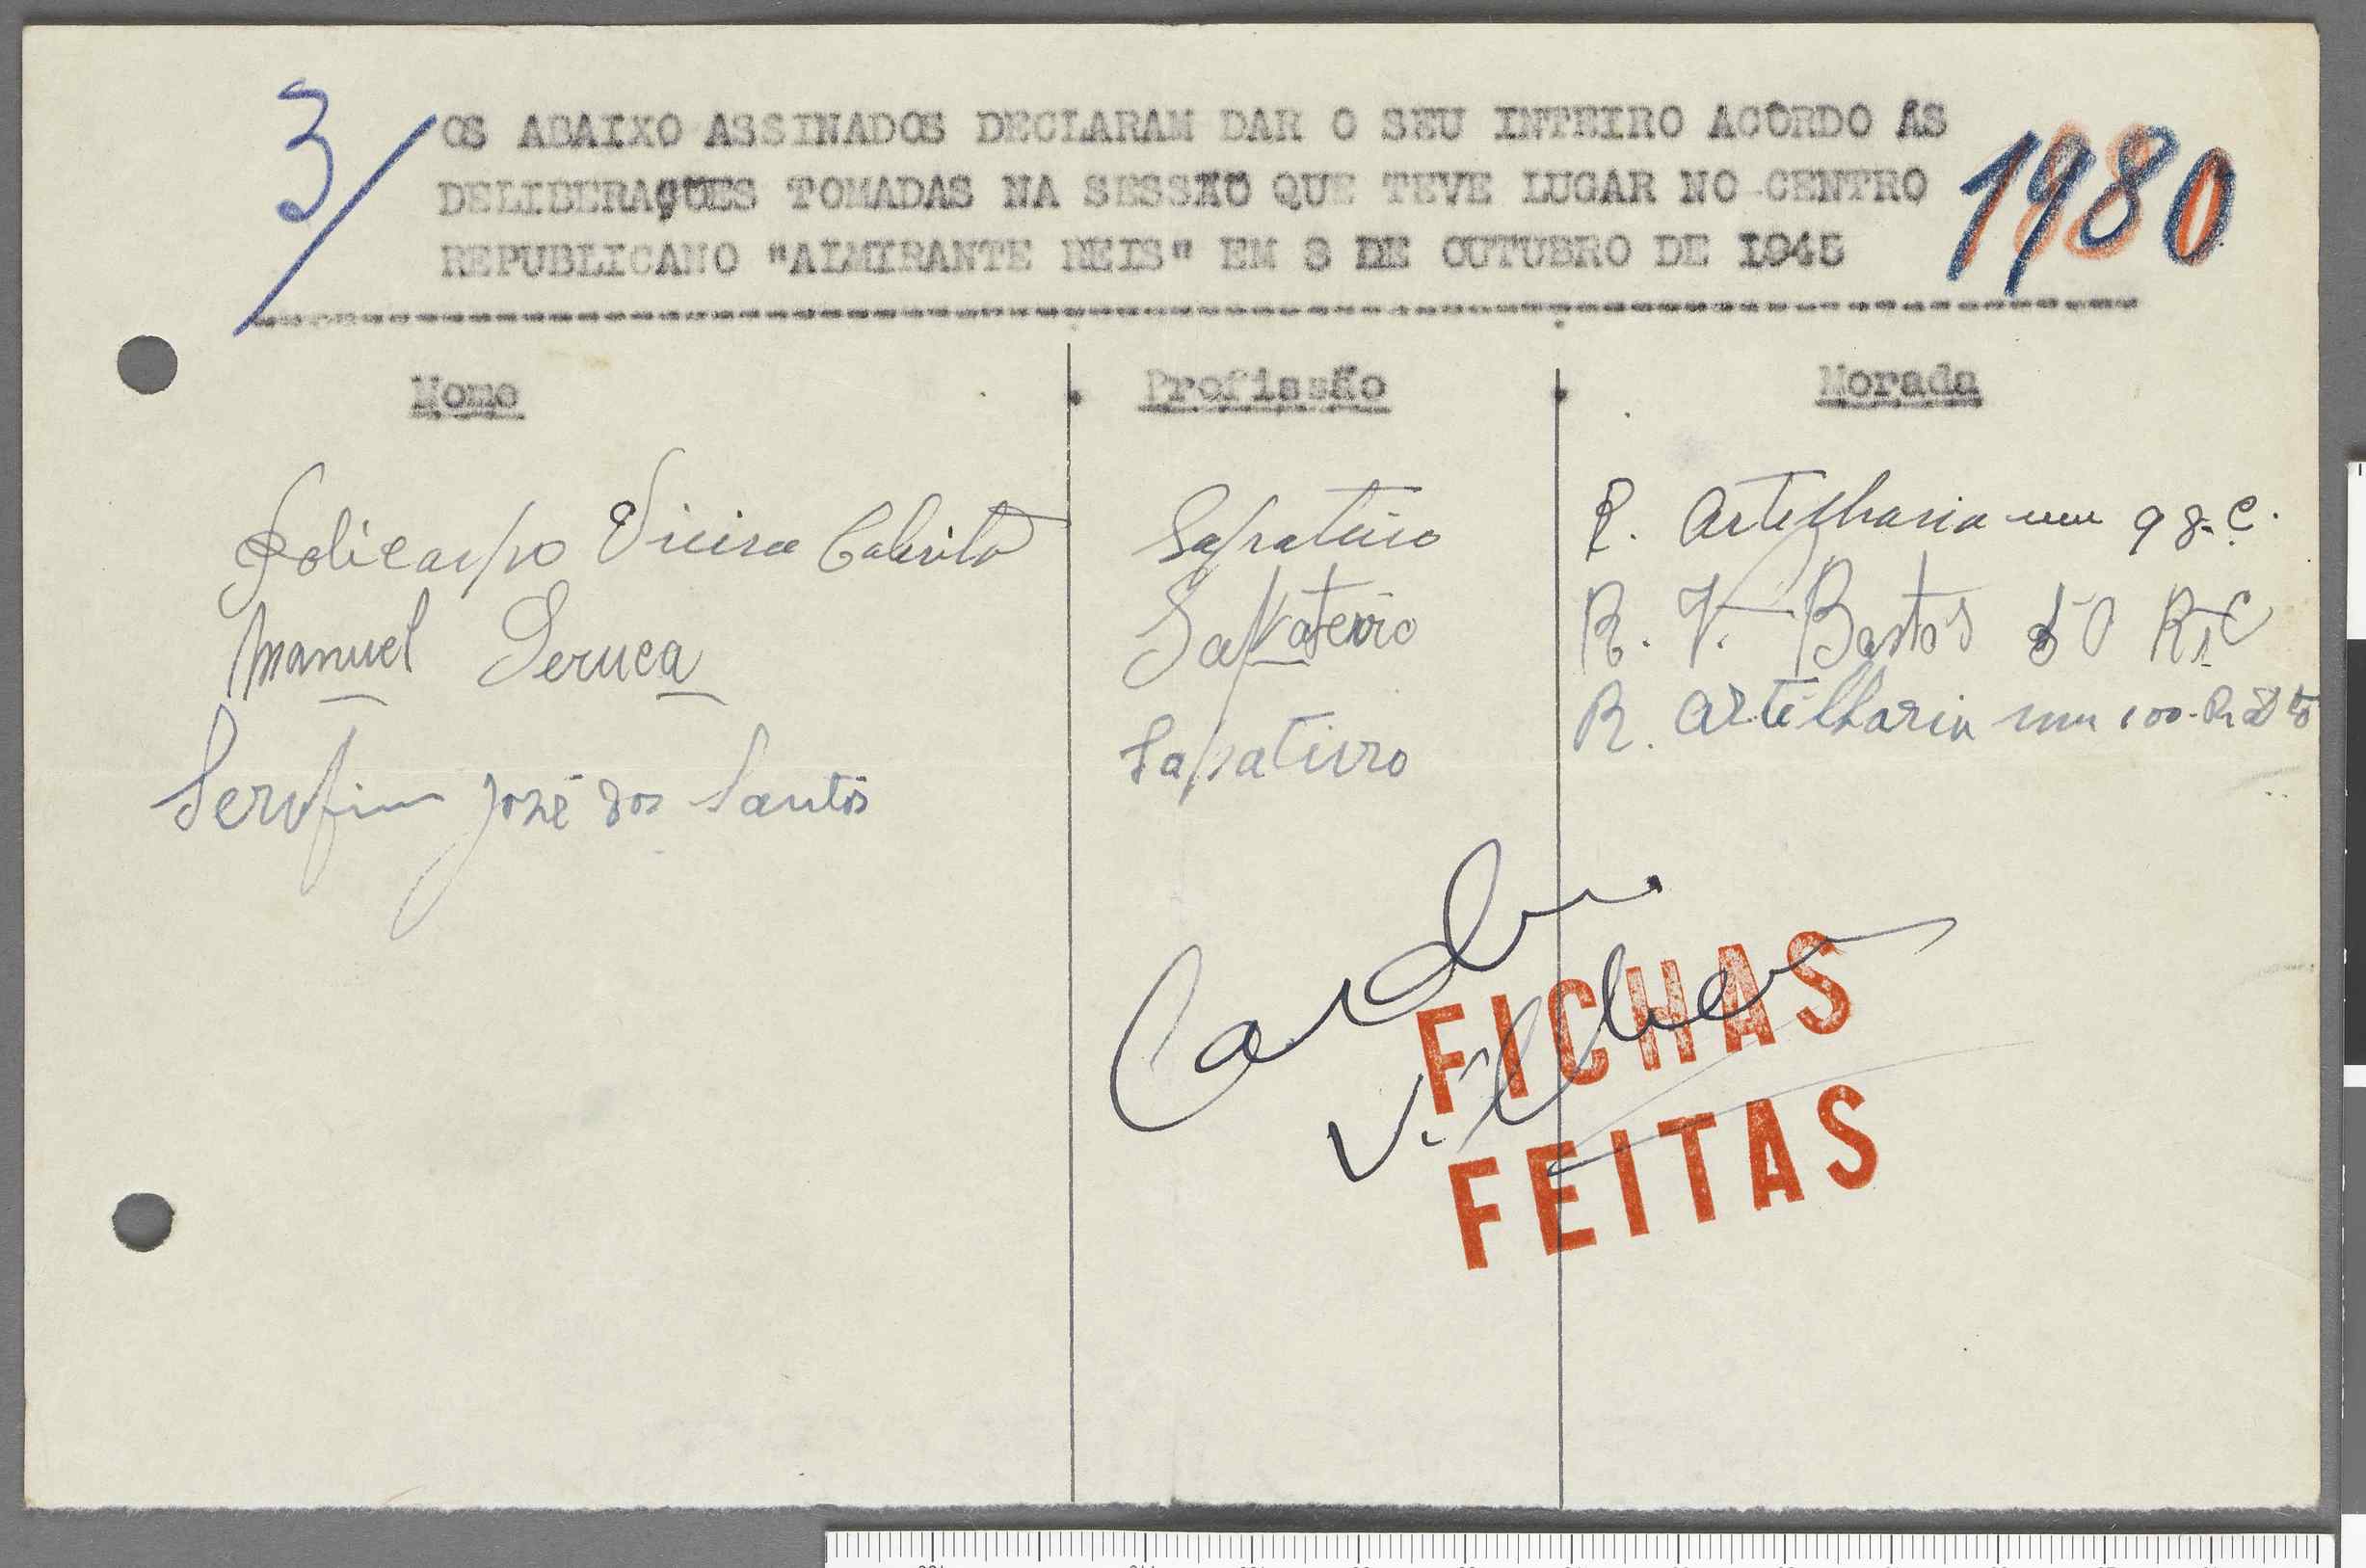 3/
OS ABAIXO ASSINADOS DECLARAM DAR O SEU INTEIRO ACÔRDO ÁS
1980
DELIBERAÇÕES TOMADAS NA SESSÃO QUE TEVE LUGAR NO CENTRO
REPUBLICANO "ALMIRANTE REIS" EM 8 DE OUTUBRO DE 1945
Nome Profissão Morada
Policarpo Vieira Cabrita Sapateiro R. Artelharia um 98-C.
Manuel Seruca Sapateiro R. V. Bastos 50 R/C
Serafim José dos Santos Sapateiro R. Artilharia um 100-
FICHAS
FEITAS